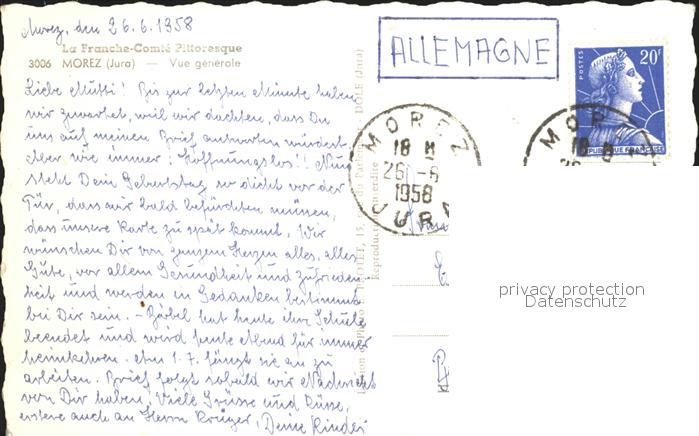 Morez, den 26.6.1958
La Franche-Comté Pittoresque
3006 MOREZ (Jura) — Vue générale
Liebe Mutti! Bis zur letzten Minute haben
wir gewartet, weil wir dachten, dass Du
uns auf meinen Brief antworten würdest,
aber wie immer: Hoffnungslos!! Nun
steht Dein Geburtstag so dicht vor der
Tür, dass wir bald befürchten müssen,
dass unsere Karte zu spät kommt. Wir
wünschen Dir von ganzem Herzen alles, alles
Gute, vor allem Gesundheit und Zufrieden-
heit und werden in Gedanken bestimmt
bei Dir sein. - Bärbel hat heute ihre Schule
beendet und wird heute Abend für immer
heimkehren. Am 1.7. fängt sie an zu
arbeiten. Brief folgt sobald wir Nachricht
von Dir haben! Viele Grüsse und Küsse,
erstere auch an Herrn Krüger, Deine Kinder
DOLE (Jura)
Reproduction interdite
ALLEMAGNE
POSTES
20F
REPUBLIQUE FRANÇAISE
MOREZ
18 H
26 -6
1958
JURA
MOR
18 H
26
privacy protection
Datenschutz